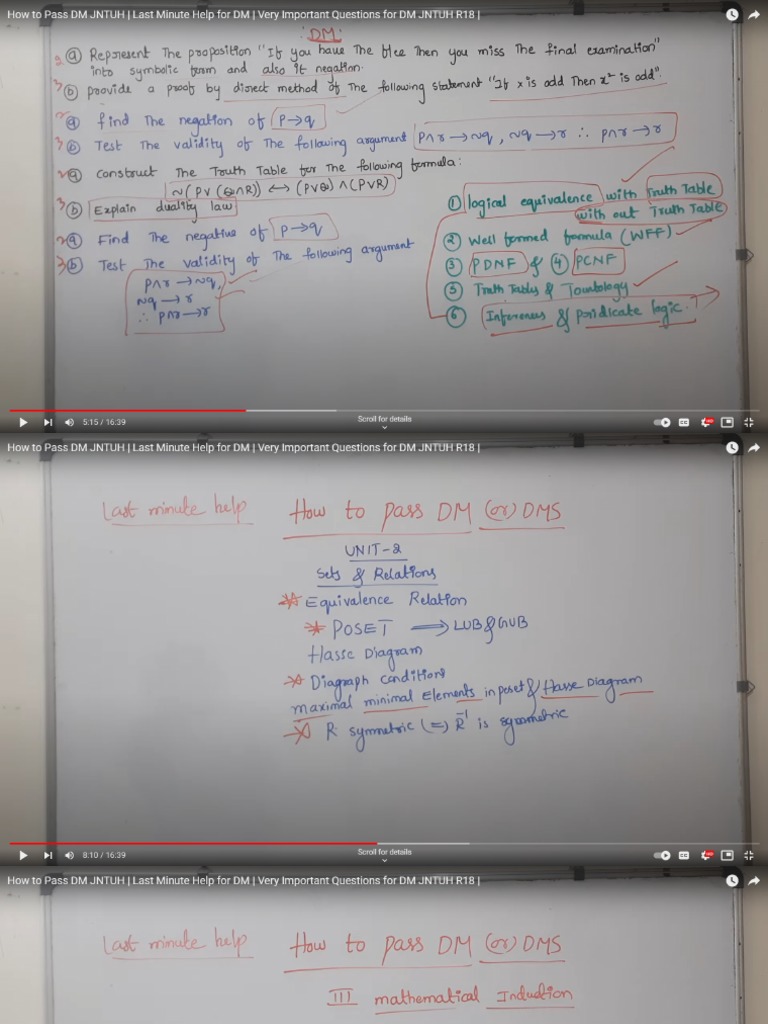 How to Pass DM JNTUH | Last Minute Help for DM | Very Important Questions for DM JNTUH R18 |
: DM:
2 ⓐ Represent The proposition "If you have The flee Then you miss The final examination"
into symbolic form and also it negation.
3 ⓑ provide a proof by direct method of The following statement "If x is odd Then x² is odd".
2 ⓐ find The negation of P→q
3 ⓑ Test The validity of The following argument p∧r →~q, ~q →r ∴ p∧r →r
2 ⓐ construct The Truth Table for The following formula:
~(P∨(Q∧R)) ↔ (P∨Q)∧(P∨R)
3 ⓑ Explain duality law
2 ⓐ Find The negative of P→q
3 ⓑ Test The validity of The following argument
p∧r →~q,
~q → r
∴ p∧r →r
① logical equivalence with Truth Table
with out Truth Table
② Well formed formula (WFF)
③ PDNF & ④ PCNF
⑤ Truth Tables & Toubology
⑥ Inferences & Pridicate logic.
5:15 / 16:39
Scroll for details
How to Pass DM JNTUH | Last Minute Help for DM | Very Important Questions for DM JNTUH R18 |
Last minute help How to pass DM (or) DMS
UNIT-2
Sets & Relations
Equivalence Relation
POSET ⟹ LUB & GUB
Hasse Diagram
Diagraph conditions
maximal minimal Elements in poset & Hasse Diagram
R symmetric (=) R⁻¹ is symmetric
8:10 / 16:39
Scroll for details
How to Pass DM JNTUH | Last Minute Help for DM | Very Important Questions for DM JNTUH R18 |
Last minute help How to pass DM (or) DMS
III mathematical Induction